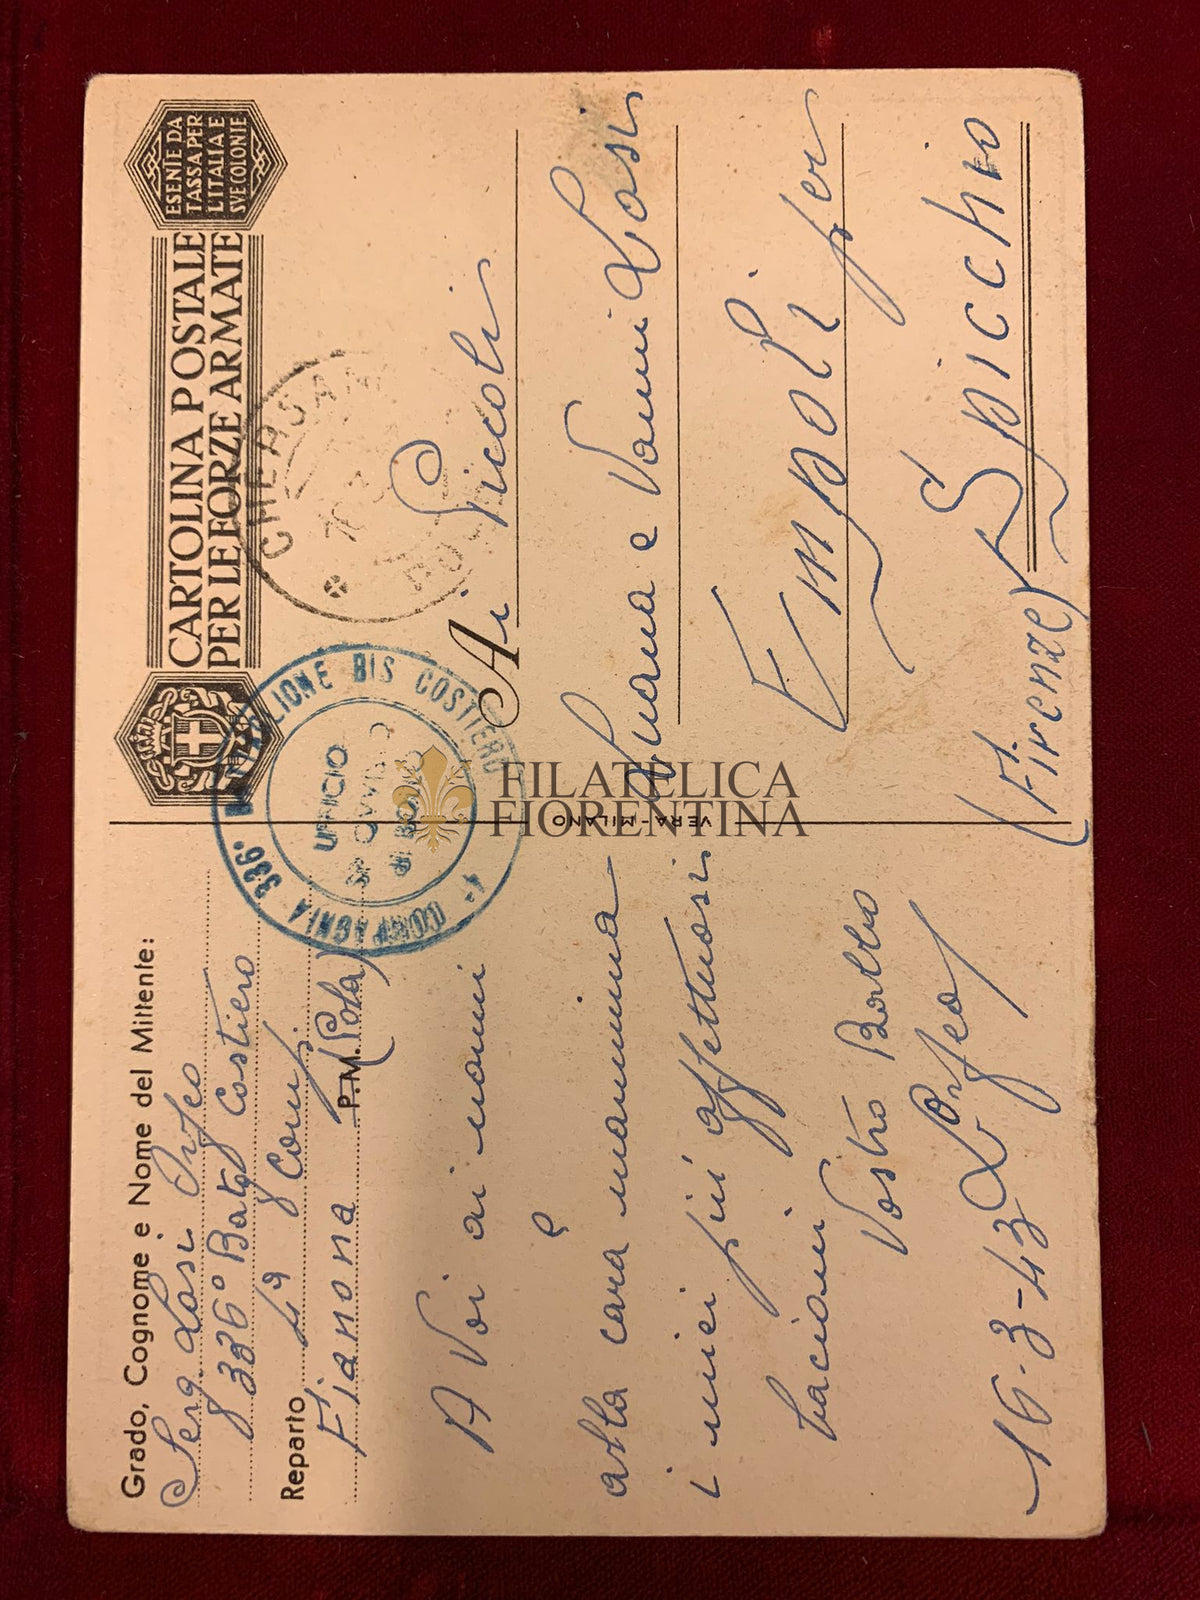 Grado, Cognome e Nome del Mittente:
Serg. Losi Orfeo
336° Batg Costiero
Reparto 4ª Comp.
Fianona P.M. (Pola)
A Voi ai nonni
e
alla cara mamma
i miei più affettuosi
bacioni
Vostro Babbo
16-3-43 Orfeo
CARTOLINA POSTALE
PER LE FORZE ARMATE
ESENTE DA
TASSA PER
L'ITALIA E
SVE COLONIE
4ª COMPAGNIA 336° BATTAGLIONE BIS COSTIERO
UFFICIO
CHERSAN
Ai Piccoli
Luana e Vanni Losi
Empoli per
Spicchio
(Firenze)
VERA - MILANO
FILATELICA
FIORENTINA